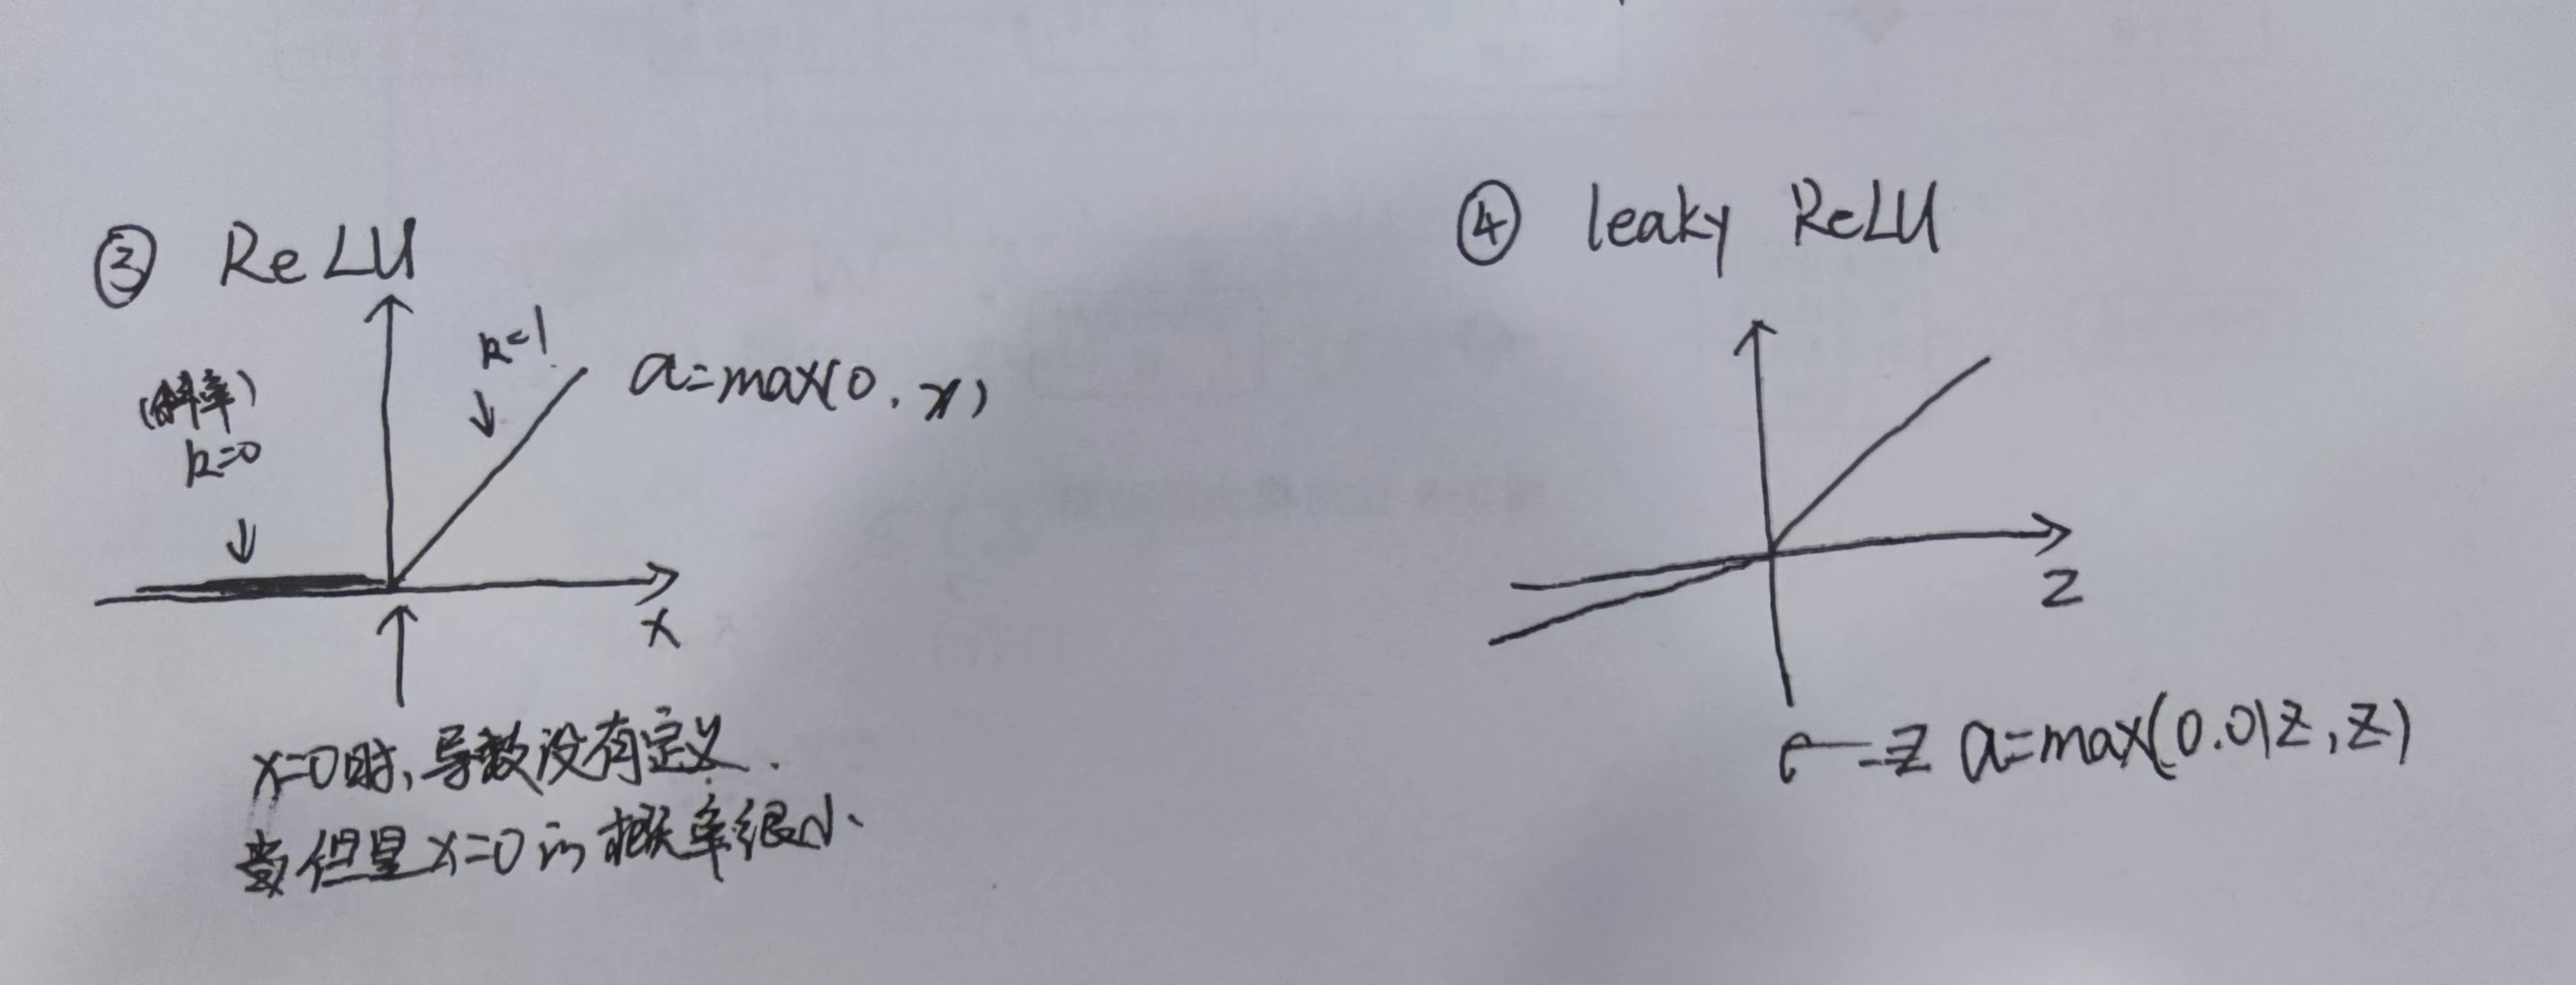 ③ ReLU
k=1
a=max(0,x)
(斜率)
k=0
x
x=0时,导数没有定义.
但是x=0的概率很小、
④ leaky ReLU
z
a=max(0.01z,z)